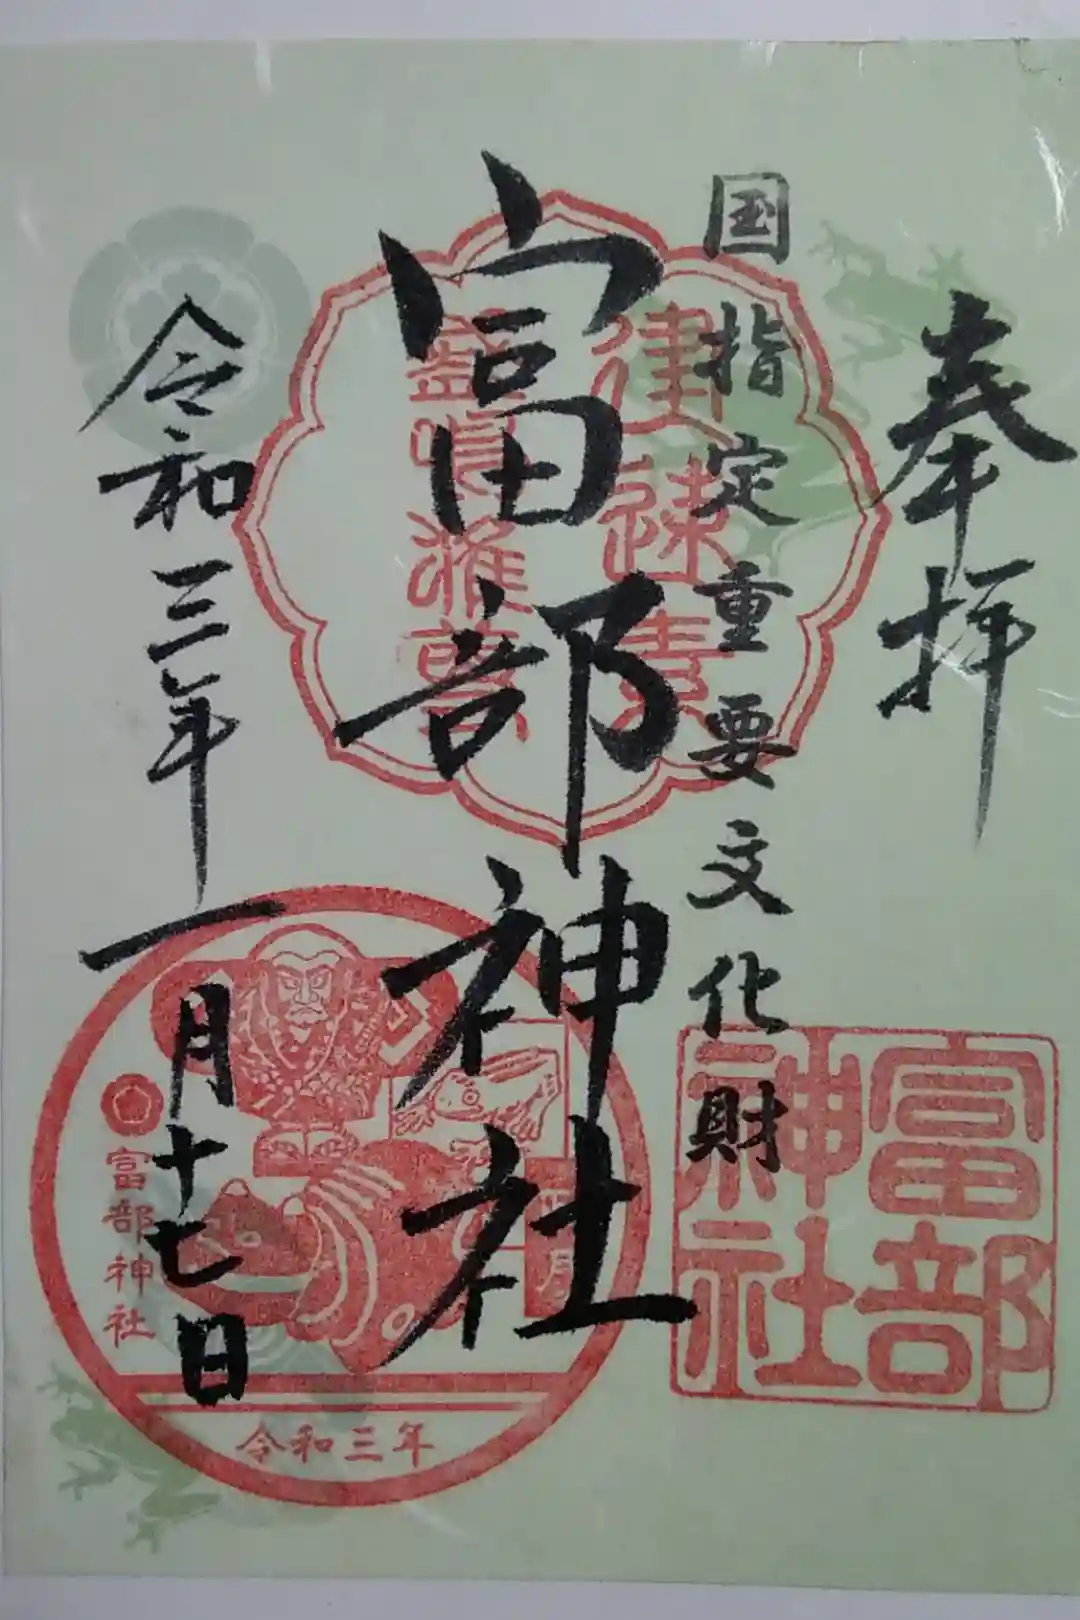 奉拝
国指定重要文化財
富部神社
令和三年一月十七日
富部
神社
富部神社
令和三年